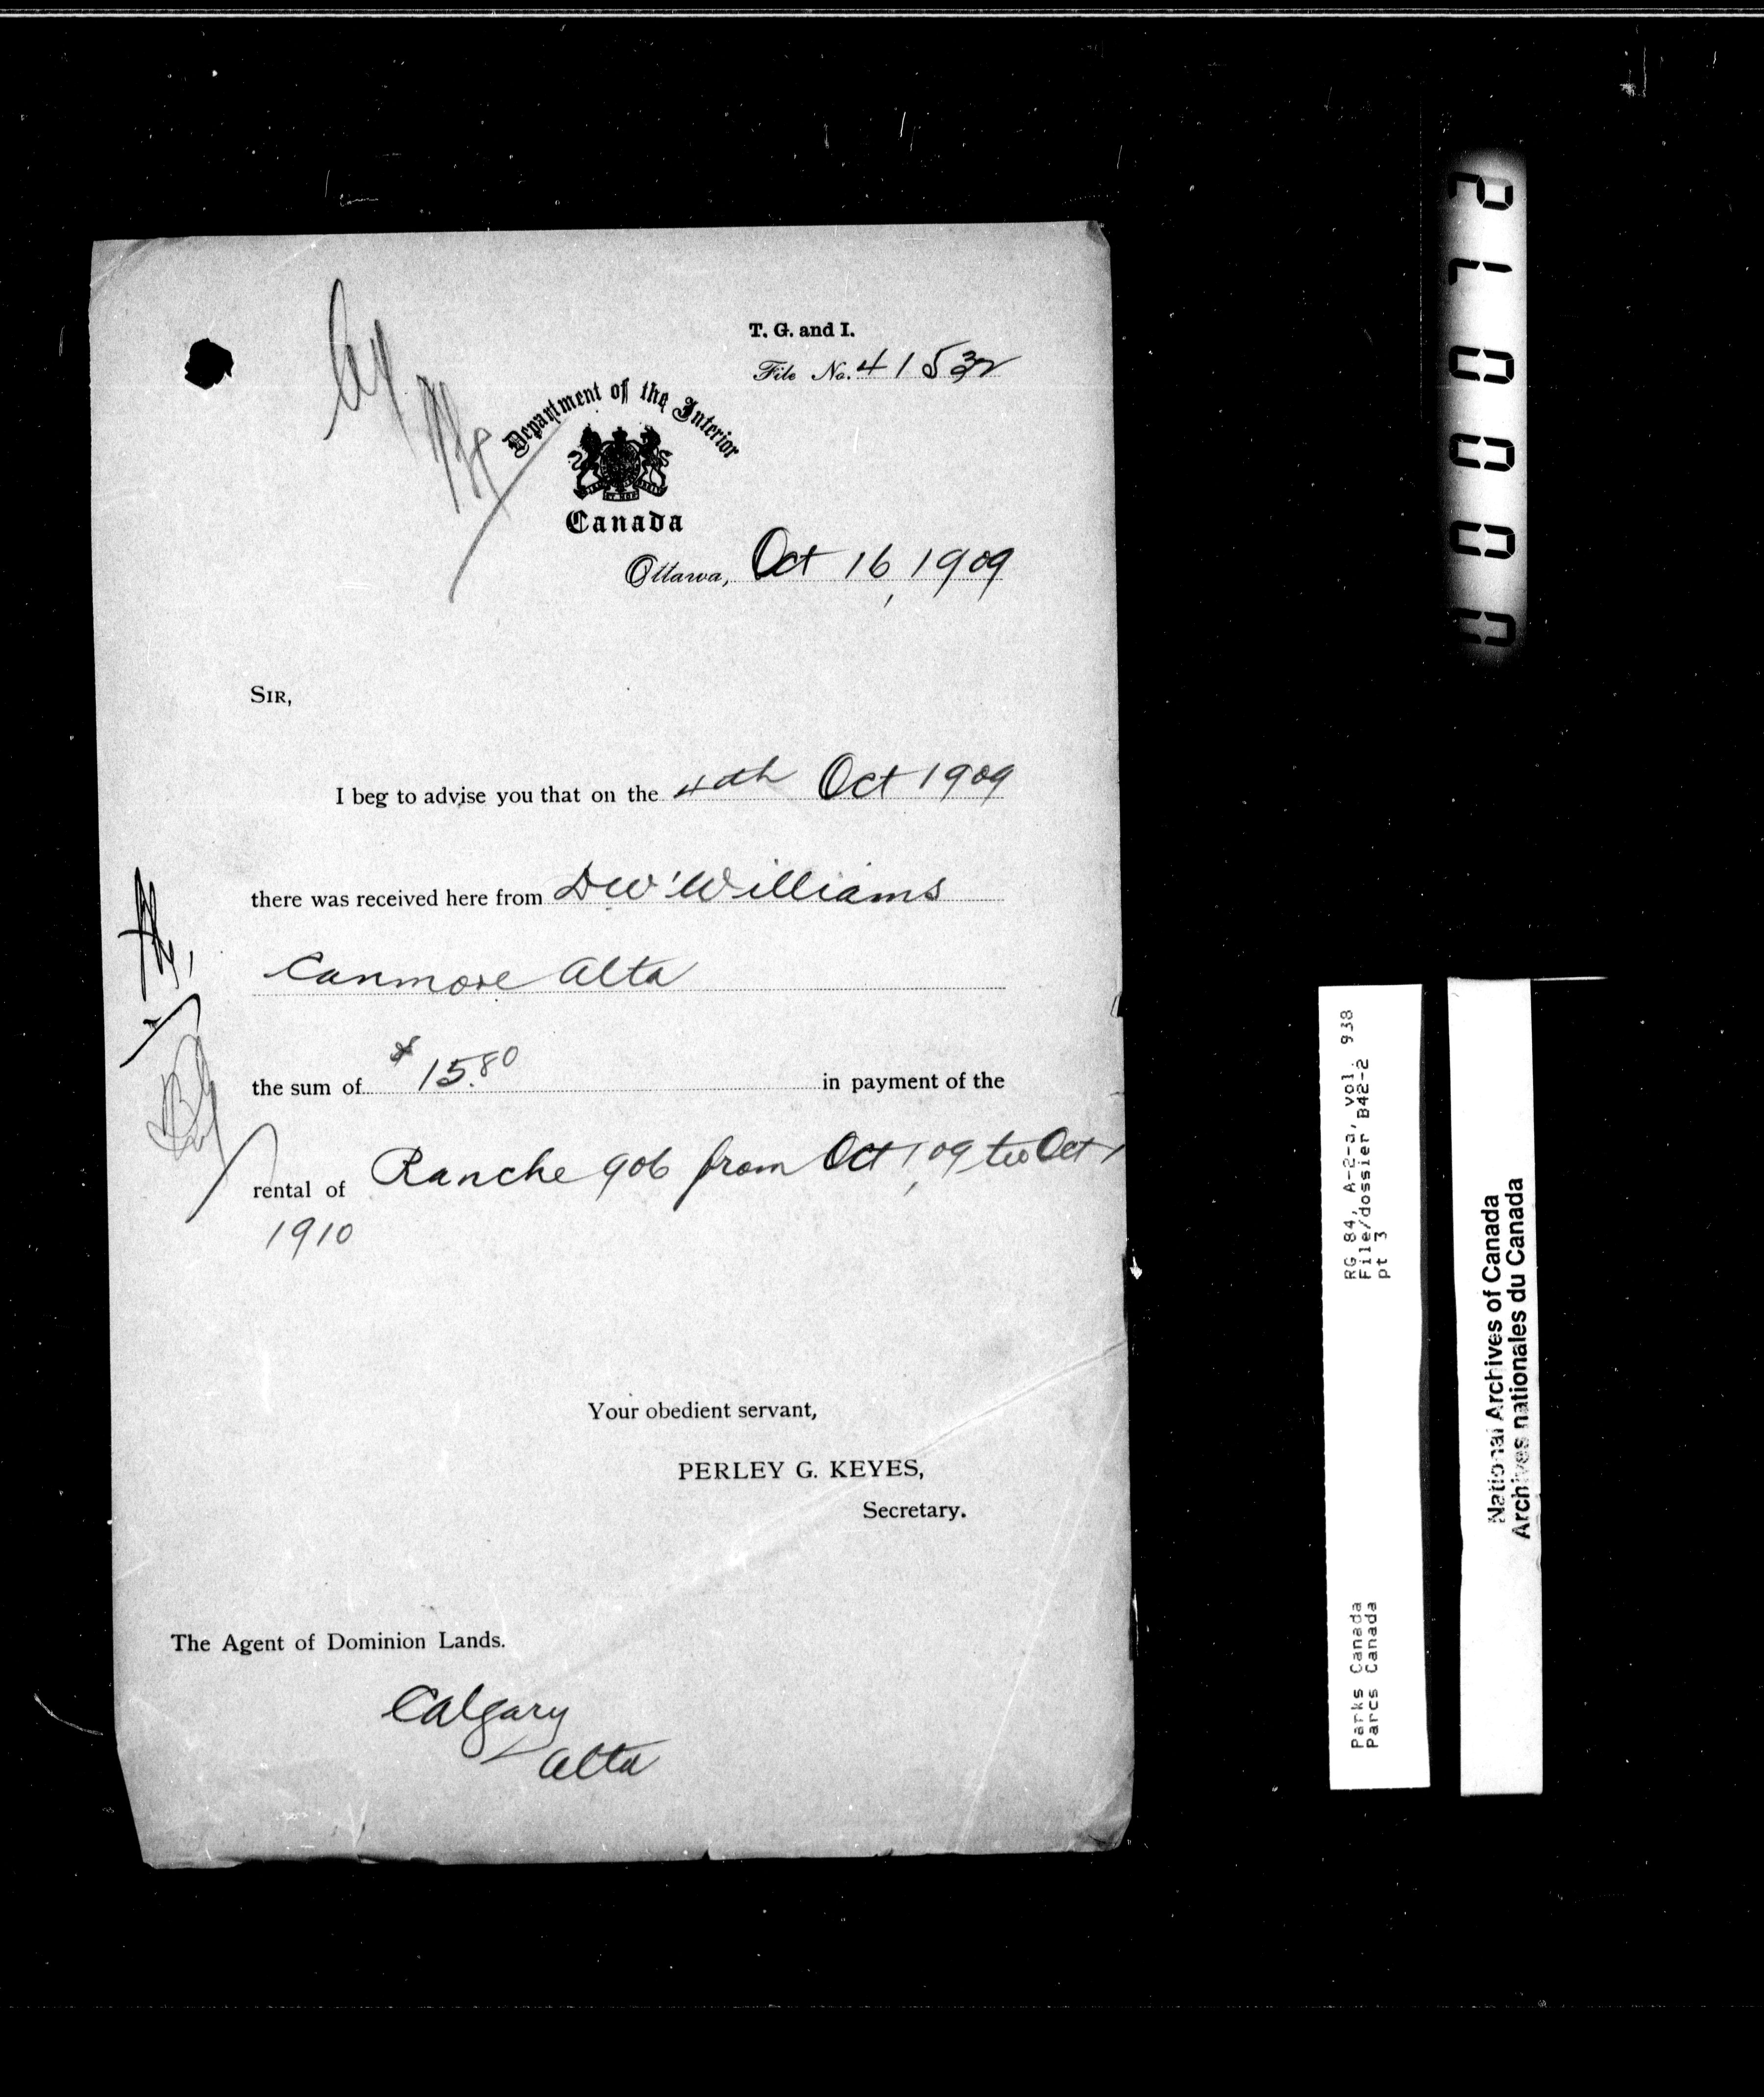 T. G. and I.
File No. 41532
Department of the Interior
Canada
Ottawa, Oct 16, 1909
SIR,
I beg to advise you that on the 4th Oct 1909
there was received here from D.W. Williams
Canmore Alta
the sum of $15.80 in payment of the
rental of Ranche 906 from Oct 1, 09 to Oct 1
1910
Your obedient servant,
PERLEY G. KEYES,
Secretary.
The Agent of Dominion Lands.
Calgary
Alta
000012
RG 84, A-2-a, vol. 938
File/dossier B42-2
pt 3
Parks Canada
Parcs Canada
National Archives of Canada
Archives nationales du Canada